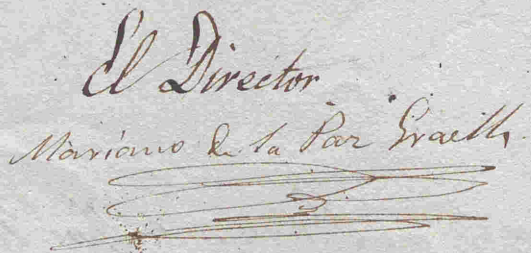 El Director
Mariano de la Paz Graells